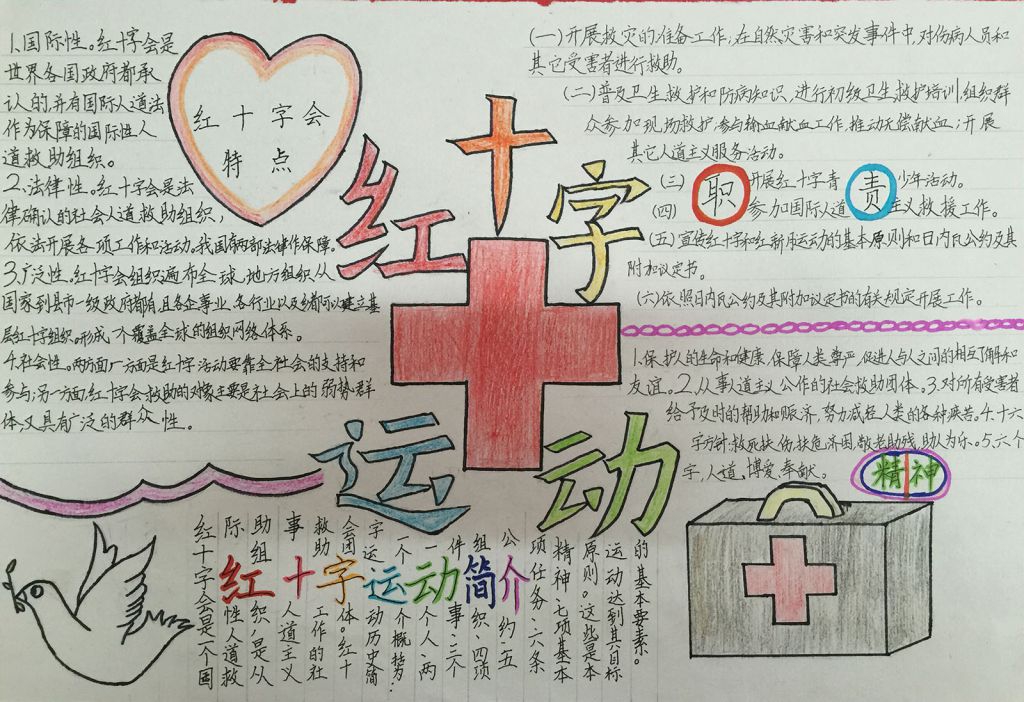 红十字运动
红十字会
特点
1.国际性。红十字会是
世界各国政府都承
认的,并有国际人道法
作为保障的国际性人
道救助组织。
2.法律性。红十字会是法
律确认的社会人道救助组织,
依法开展各项工作和活动。我国有两部法律作保障。
3.广泛性。红十字会组织遍布全球,地方组织从
国家到县市一级政府都有且各企事业、各行业以及乡都可以建立基
层红十字组织,形成一个覆盖全球的组织网络体系。
4.社会性。两方面一方面是红十字活动要靠全社会的支持和
参与;另一方面,红十字会救助的对象主要是社会上的弱势群
体,又具有广泛的群众性。
职责
(一)开展救灾的准备工作;在自然灾害和突发事件中,对伤病人员和
其它受害者进行救助。
(二)普及卫生救护和防病知识,进行初级卫生救护培训,组织群
众参加现场救护;参与输血献血工作,推动无偿献血;开展
其它人道主义服务活动。
(三)开展红十字青少年活动。
(四)参加国际人道主义救援工作。
(五)宣传红十字和红新月运动的基本原则和日内瓦公约及其
附加议定书。
(六)依照日内瓦公约及其附加议定书的有关规定开展工作。
1.保护人的生命和健康,保障人类尊严,促进人与人之间的相互了解和
友谊。2.从事人道主义公作的社会救助团体。3.对所有受害者
给予及时的帮助和赈济,努力减轻人类的各种疾苦。4.十六
字方针:救死扶伤,扶危济困,敬老助残,助人为乐。5.六个
字,人道,博爱,奉献。
精神
红十字运动简介
红十字会是一个国
际性人道救
助组织,是从
事人道主义
救助工作的社
会团体。红十
字运动历史简
一个介概梦:
一个人、两
件事、三个
组织、四项
公约、五
项任务、六条
精神、七项基本
原则。这些是本
运动达到其目标
的基本要素。